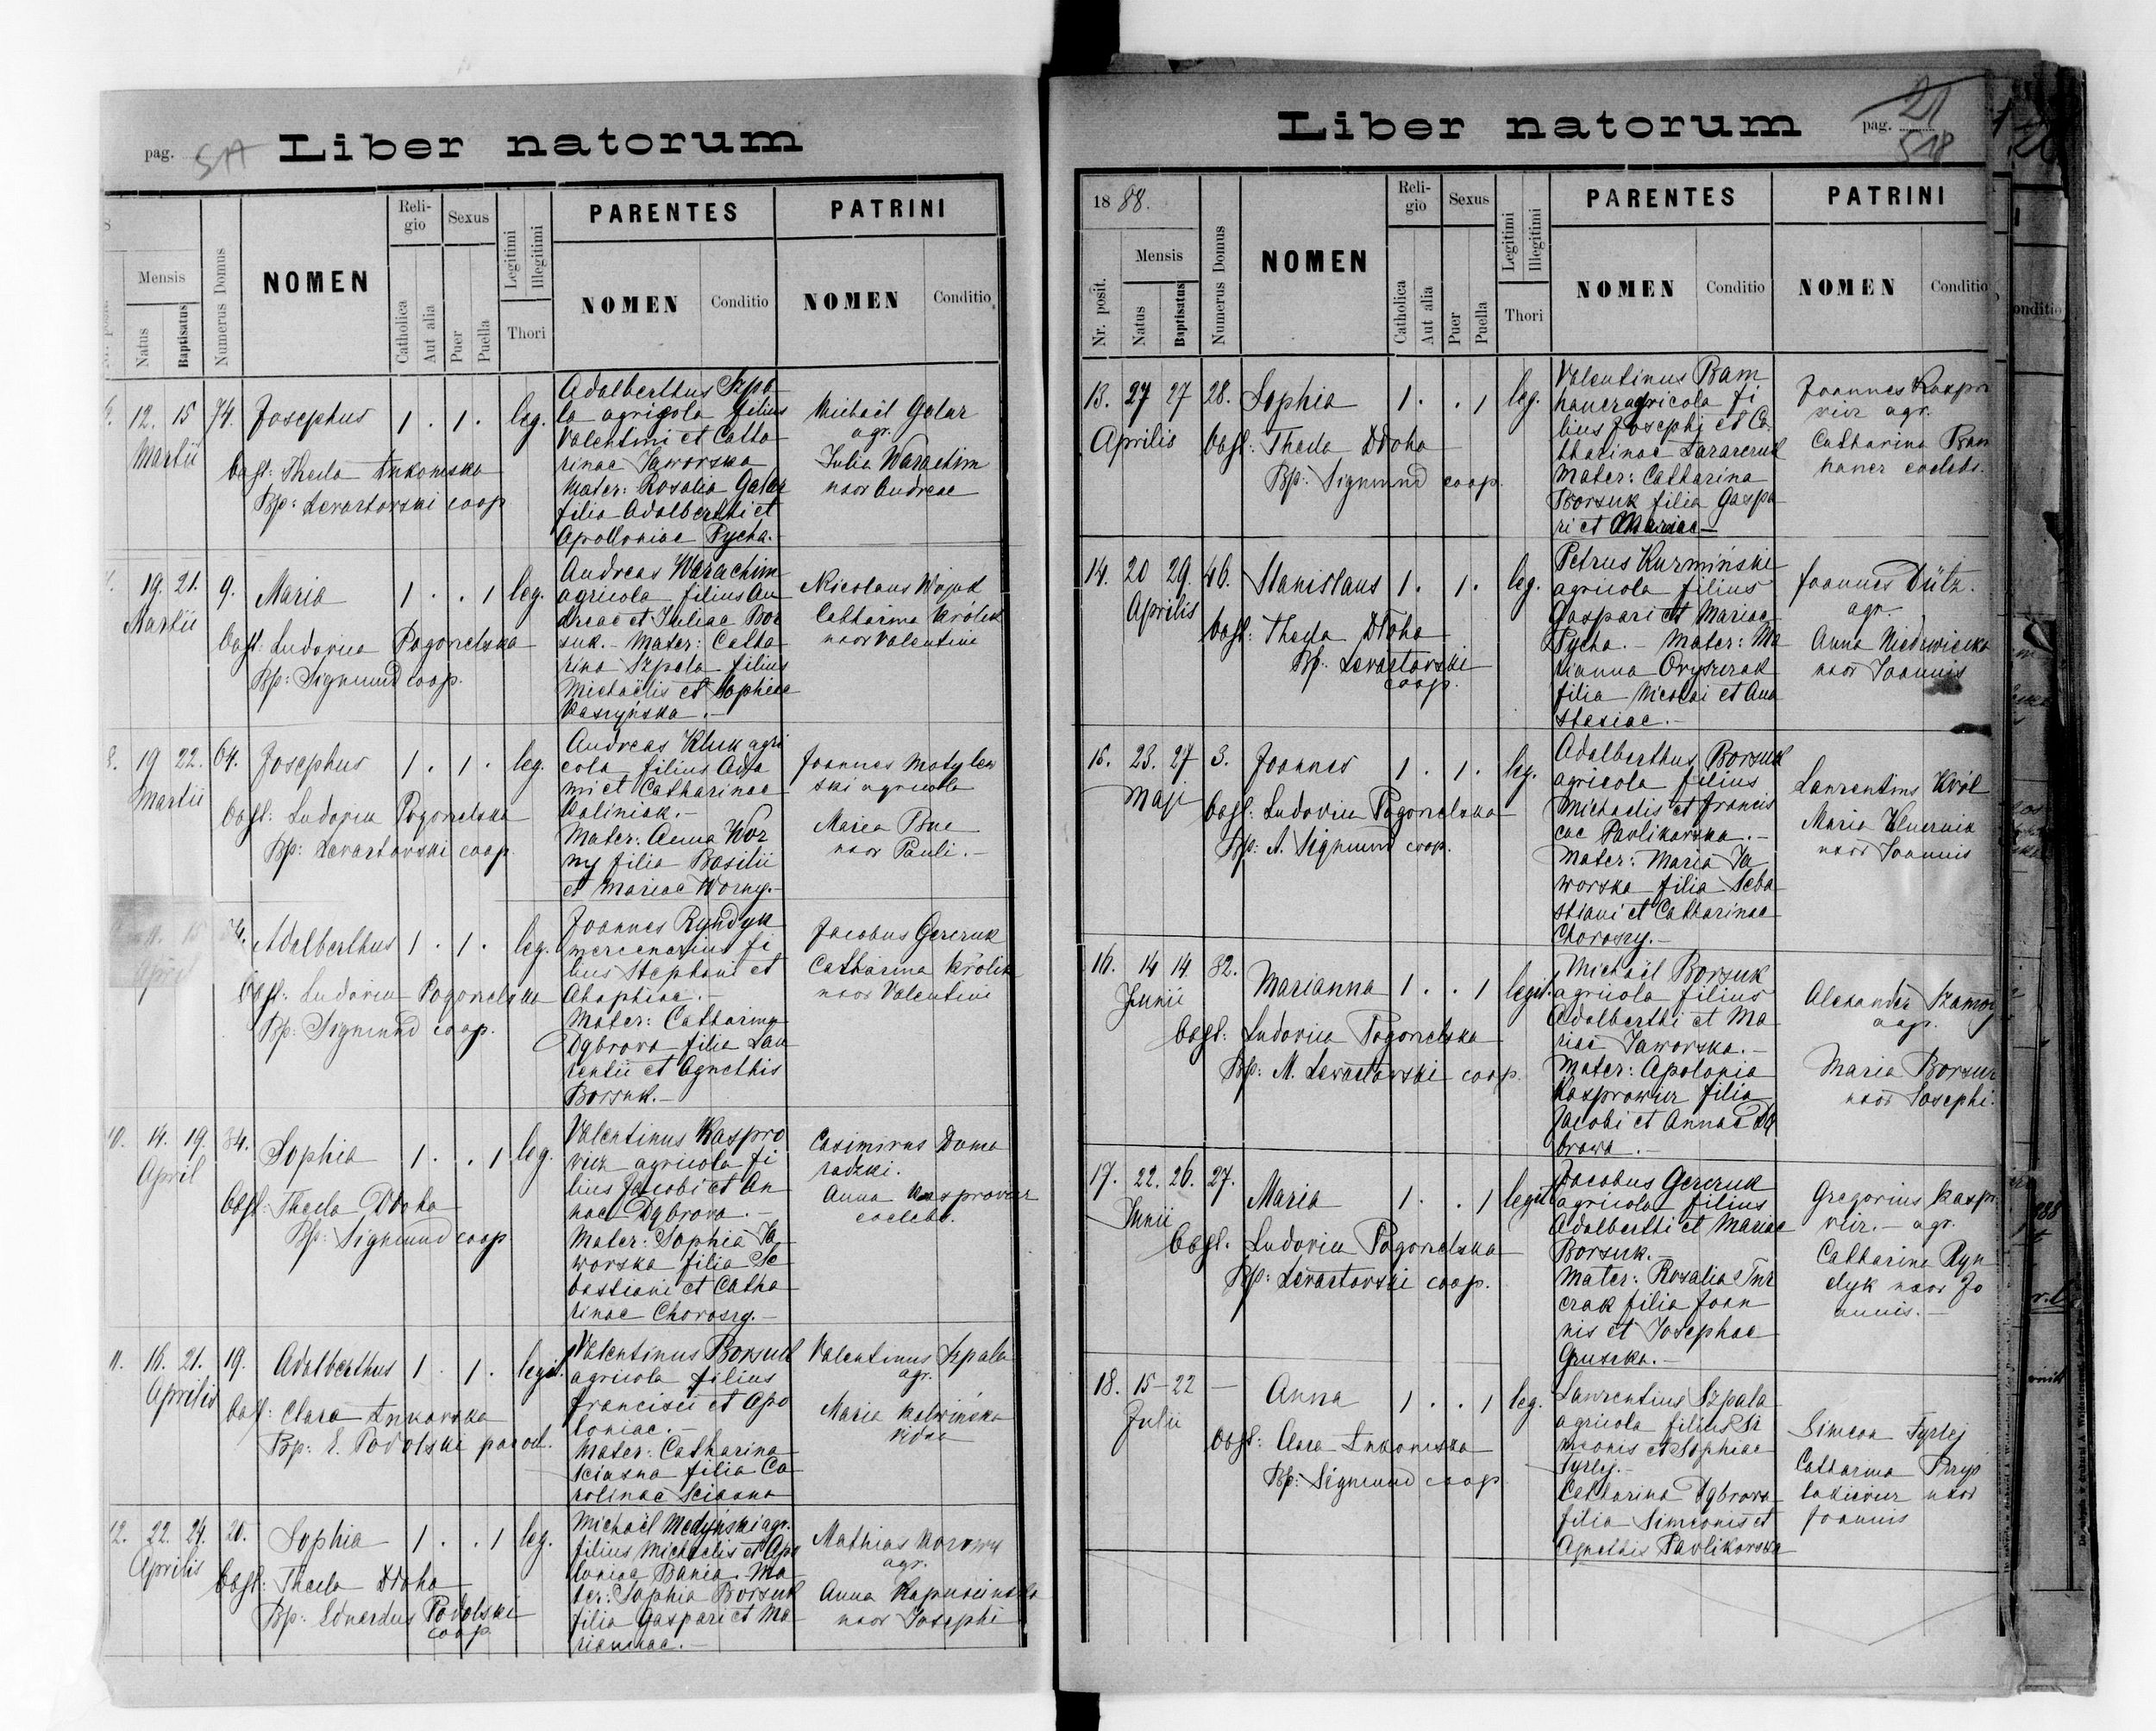 pag. 517 Liber natorum
Mensis
Natus
Baptisatus
Numerus Domus
NOMEN
Religio
Catholica
Aut alia
Sexus
Puer
Puella
Legitimi
Illegitimi
Thori
PARENTES
NOMEN
Conditio
PATRINI
NOMEN
Conditio
12. 15 74. Josephus 1 . 1 . leg.
Martii
obst: Thecla
Bp: Levartovski coop
Adalberthus Szpa
la agricola filius
Valentini et Catha
rinae Jaworska
Mater: Rosalia Galar
filia Adalberthi et
Apolloniae Pycha.
Michaël Galar
agr.
Julia Warachim
uxor Andreae
19. 21. 9. Maria 1 . . 1 leg.
Martii
obst: Ludovica Pogorzelska
Bp: Sigmund coop.
Andreas Warachim
agricola filius An
dreae et Juliae Bor
suk. - Mater: Catha
rina Szpala filius
Michaëlis et Sophiae
Nicolaus
Catharina Królik
uxor Valentini
8. 19 22. 64. Josephus 1 . 1 . leg.
Martii
obst: Ludovica Pogorzelska
Bp: Levartovski coop.
Andreas Kluk agri
cola filius Ada
mi et Catharinae
Kaliniak. -
Mater: Anna Wor
ny filia Basilii
et Mariae Worny. -
Joannes Motylew
ski agricola
Maria
uxor Pauli. -
11. 15 Adalberthus 1 . 1 . leg.
April
obst: Ludovica Pogorzelska
Bp: Sigmund coop.
Joannes Ryndyk
mercenarius fi
lius Stephani et
Ahaphiae. -
Mater: Catharina
Dąbrova filia Lau
rentii et Agnethis
Borsuk. -
Jacobus Gereruk
Catharina Królik
uxor Valentini
10. 14. 19. 34. Sophia 1 . . 1 leg.
April
obst: Thecla Dłoha
Bp: Sigmund coop
Valentinus Kaspro
vicz agricola fi
lius Jacobi et An
nae Dąbrova. -
Mater: Sophia Ja
worska filia Se
bastiani et Catha
rinae Choroszy. -
Casimirus Doma
radzki.
Anna Kasprovicz
coelebs.
11. 16. 21. 19. Adalberthus 1 . 1 . legit.
Aprilis
obst: Clara
Bp: E. Podolski paroch.
Valentinus Borsuk
agricola filius
Francisci et Apo
loniae. -
Mater: Catharina
Sciasna filia Ca
rolinae Sciasna
Valentinus Szpala
agr.
Maria
vidua
12. 22. 24. 20. Sophia 1 . . 1 leg.
Aprilis
obst: Thecla Dłoha
Bp: Eduardus Podolski
coop
Michaël Medyński agr.
filius Michaëlis et Apo
loniae Bania. Ma
ter: Sophia Borsuk
filia Gaspari et Ma
riannae. -
Mathias
agr.
Anna Kapuścinska
uxor Josephi
Liber natorum pag. 21
518
1888.
Nr. posit.
Mensis
Natus
Baptisatus
Numerus Domus
NOMEN
Religio
Catholica
Aut alia
Sexus
Puer
Puella
Legitimi
Illegitimi
Thori
PARENTES
NOMEN
Conditio
PATRINI
NOMEN
Conditio
13. 27 27 28. Sophia 1 . . 1 leg.
Aprilis
obst: Thecla Dłoha
Bp: Sigmund coop.
Valentinus Bam
haner agricola fi
lius Josephi et Ca
tharinae
Mater: Catharina
Borsuk filia Gaspa
ri et Mariae -
Joannes Kaspro
vicz agr.
Catharina Bam
haner coelebs.
14. 20 29. 46. Stanislaus 1 . 1 . leg.
Aprilis
obst: Thecla Dłoha
Bp: Levartovski
coop.
Petrus Kurmiński
agricola filius
Gaspari et Mariae
Pycha. - Mater: Ma
rianna Oryszczak
filia Nicolai et Ana
stasiae. -
Joannes Dütz.
agr.
Anna Niedzwiecka
uxor Joannis
15. 23. 27 3. Joannes 1 . 1 . leg.
Maji
obst: Ludovica Pogorzelska
Bp: A. Sigmund coop.
Adalberthus Borsuk
agricola filius
Michaelis et Francis
cae Pavlikovska. -
Mater: Maria Ja
worska filia Seba
stiani et Catharinae
Choroszy. -
Laurentius Król
Maria
uxor Joannis
16. 14 14. 32. Marianna 1 . . 1 legit.
Junii
obst: Ludovica Pogorzelska
Bp: M. Levartovski coop.
Michaël Borsuk
agricola filius
Adalberthi et Ma
riae Jaworska. -
Mater: Apolonia
Kasprowicz filia
Jacobi et Annae Dą
browa. -
Alexander
agr.
Maria Borsuk
uxor Josephi.
17. 22. 26. 27. Maria 1 . . 1 legit
Junii
obst. Ludovica Pogorzelska
Bp: Levartovski coop.
Jacobus Gereruk
agricola filius
Adalberthi et Mariae
Borsuk. -
Mater: Rosalia Tur
czak filia Joan
nis et Josephae
Gruszka. -
Gregorius Kaspro
vicz. - agr.
Catharina Ryn
dyk uxor Jo
annis. -
18. 15 - 22 — Anna 1 . . 1 leg.
Julii
obst: Clara
Bp: Sigmund coop
Laurentius Szpala
agricola filius Si
meonis et Sophiae
Tyrlej. -
Catharina Dąbrova
filia Simeonis et
Agnethis Pavlikovska
Simeon Tyrlej
Catharina Przyp
uxor
Joannis